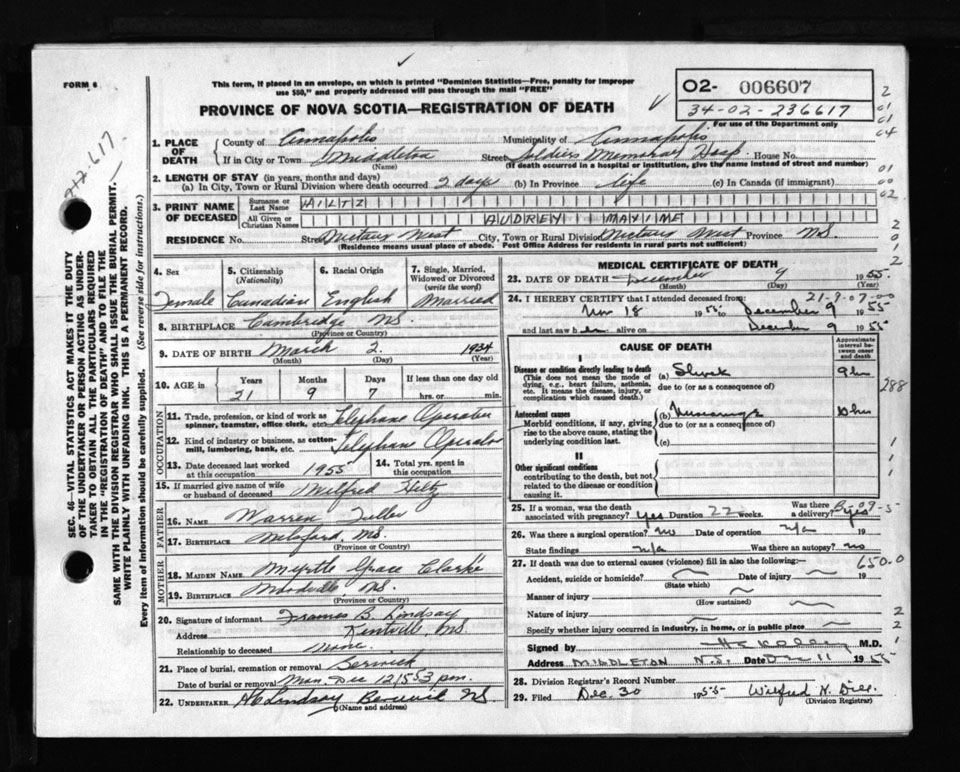 FORM 6
This form, if placed in an envelope, on which is printed "Dominion Statistics—Free, penalty for improper
use $50," and properly addressed will pass through the mail "FREE"
PROVINCE OF NOVA SCOTIA—REGISTRATION OF DEATH
02- 006607
34-02-236617
For use of the Department only
212617
SEC. 46—VITAL STATISTICS ACT MAKES IT THE DUTY
OF THE UNDERTAKER OR PERSON ACTING AS UNDER-
TAKER TO OBTAIN ALL THE PARTICULARS REQUIRED
IN THE "REGISTRATION OF DEATH" AND TO FILE THE
SAME WITH THE DIVISION REGISTRAR WHO SHALL ISSUE THE BURIAL PERMIT.
WRITE PLAINLY WITH UNFADING INK. THIS IS A PERMANENT RECORD.
Every item of information should be carefully supplied. (See reverse side for instructions.)
1. PLACE OF DEATH
County of Annapolis Municipality of Annapolis
If in City or Town Middleton Street Soldiers Memorial Hosp House No.
(Name) (If death occurred in a hospital or institution, give the name instead of street and number)
2. LENGTH OF STAY (in years, months and days)
(a) In City, Town or Rural Division where death occurred 2 days (b) In Province life (c) In Canada (if immigrant)
3. PRINT NAME OF DECEASED
Surname or Last Name HILTZ
All Given or Christian Names AUDREY MAXIME
RESIDENCE No. Street West City, Town or Rural Division West Province N.S.
(Residence means usual place of abode. Post Office Address for residents in rural parts not sufficient)
4. Sex 5. Citizenship (Nationality) 6. Racial Origin 7. Single, Married, Widowed or Divorced (write the word)
Female Canadian English Married
8. BIRTHPLACE Cambridge N.S.
(Province or Country)
9. DATE OF BIRTH March 2 1934
(Month) (Day) (Year)
10. AGE in Years Months Days If less than one day old
21 9 7 hrs. or min.
OCCUPATION
11. Trade, profession, or kind of work as spinner, teamster, office clerk, etc. Telephone Operator
12. Kind of industry or business, as cotton-mill, lumbering, bank, etc. Telephone Operator
13. Date deceased last worked at this occupation 1955 14. Total yrs. spent in this occupation
15. If married give name of wife or husband of deceased Milfred Hiltz
FATHER
16. NAME Warren
17. BIRTHPLACE N.S.
(Province or Country)
MOTHER
18. MAIDEN NAME Myrtle Grace Clarke
19. BIRTHPLACE N.S.
(Province or Country)
20. Signature of informant Francis B. Lindsay
Address N.S.
Relationship to deceased None
21. Place of burial, cremation or removal Berwick
Date of burial or removal Mon. Dec 12/55 3 pm.
22. UNDERTAKER Lindsay Berwick N.S.
(Name and address)
MEDICAL CERTIFICATE OF DEATH
23. DATE OF DEATH December 9 1955.
(Month) (Day) (Year)
21-9-07-00
24. I HEREBY CERTIFY that I attended deceased from
Nov 18 1955 to December 9 1955
and last saw her alive on December 9 1955
CAUSE OF DEATH
Approximate interval between onset and death
I
Disease or condition directly leading to death
(This does not mean the mode of dying, e.g., heart failure, asthenia, etc. It means the disease, injury, or complication which caused death.)
(a) Shock 9 hrs
due to (or as a consequence of)
Antecedent causes
Morbid conditions, if any, giving rise to the above cause, stating the underlying condition last.
(b) Miscarriage
due to (or as a consequence of)
(c)
II
Other significant conditions
contributing to the death, but not related to the disease or condition causing it.
25. If a woman, was the death associated with pregnancy? Yes Duration 22 weeks. Was there a delivery? Yes
26. Was there a surgical operation? no Date of operation n/a 19
State findings n/a Was there an autopsy? no
27. If death was due to external causes (violence) fill in also the following:—
650.0
Accident, suicide or homicide? Date of injury 19
(State which)
Manner of injury
(How sustained)
Nature of injury
Specify whether injury occurred in industry, in home, or in public place
Signed by M.D.
Address MIDDLETON N.S. Date Dec 11 1955
28. Division Registrar's Record Number
29. Filed Dec. 30 1955 Wilfred
(Division Registrar)
2
01
01
04
01
00
02
2
0
1
2
288
1
1
1
2
2
1